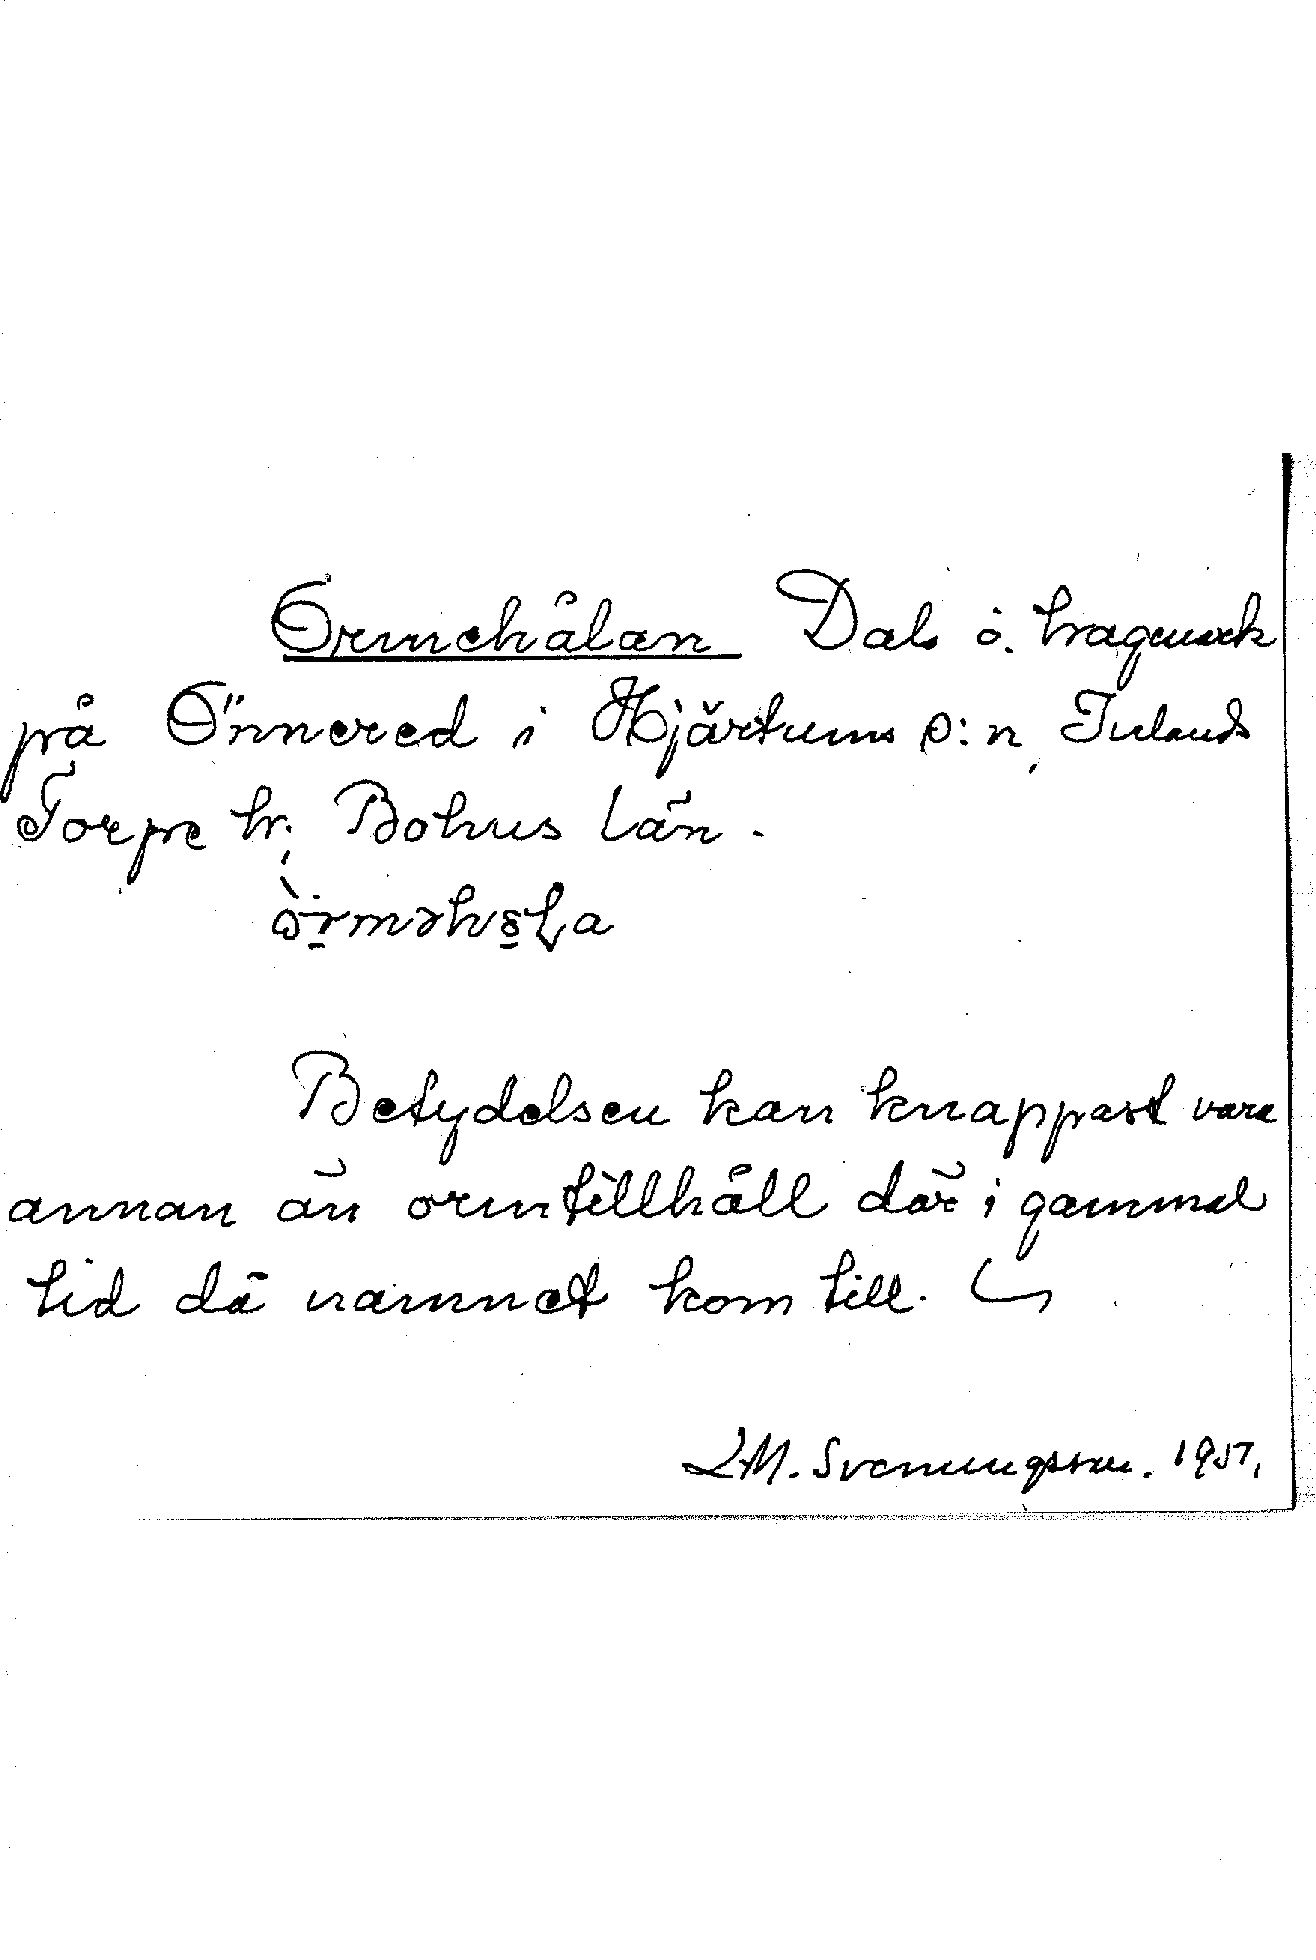 Ormehålan Dal o. hage
på Önnered i Hjärtums s:n, Inlands
Torpe hr, Bohus län.
òrməhåLa
Betydelsen kan knappast vara
annan än ormtillhåll där i gammal
tid då namnet kom till.
LM. Svenungsson. 1957.